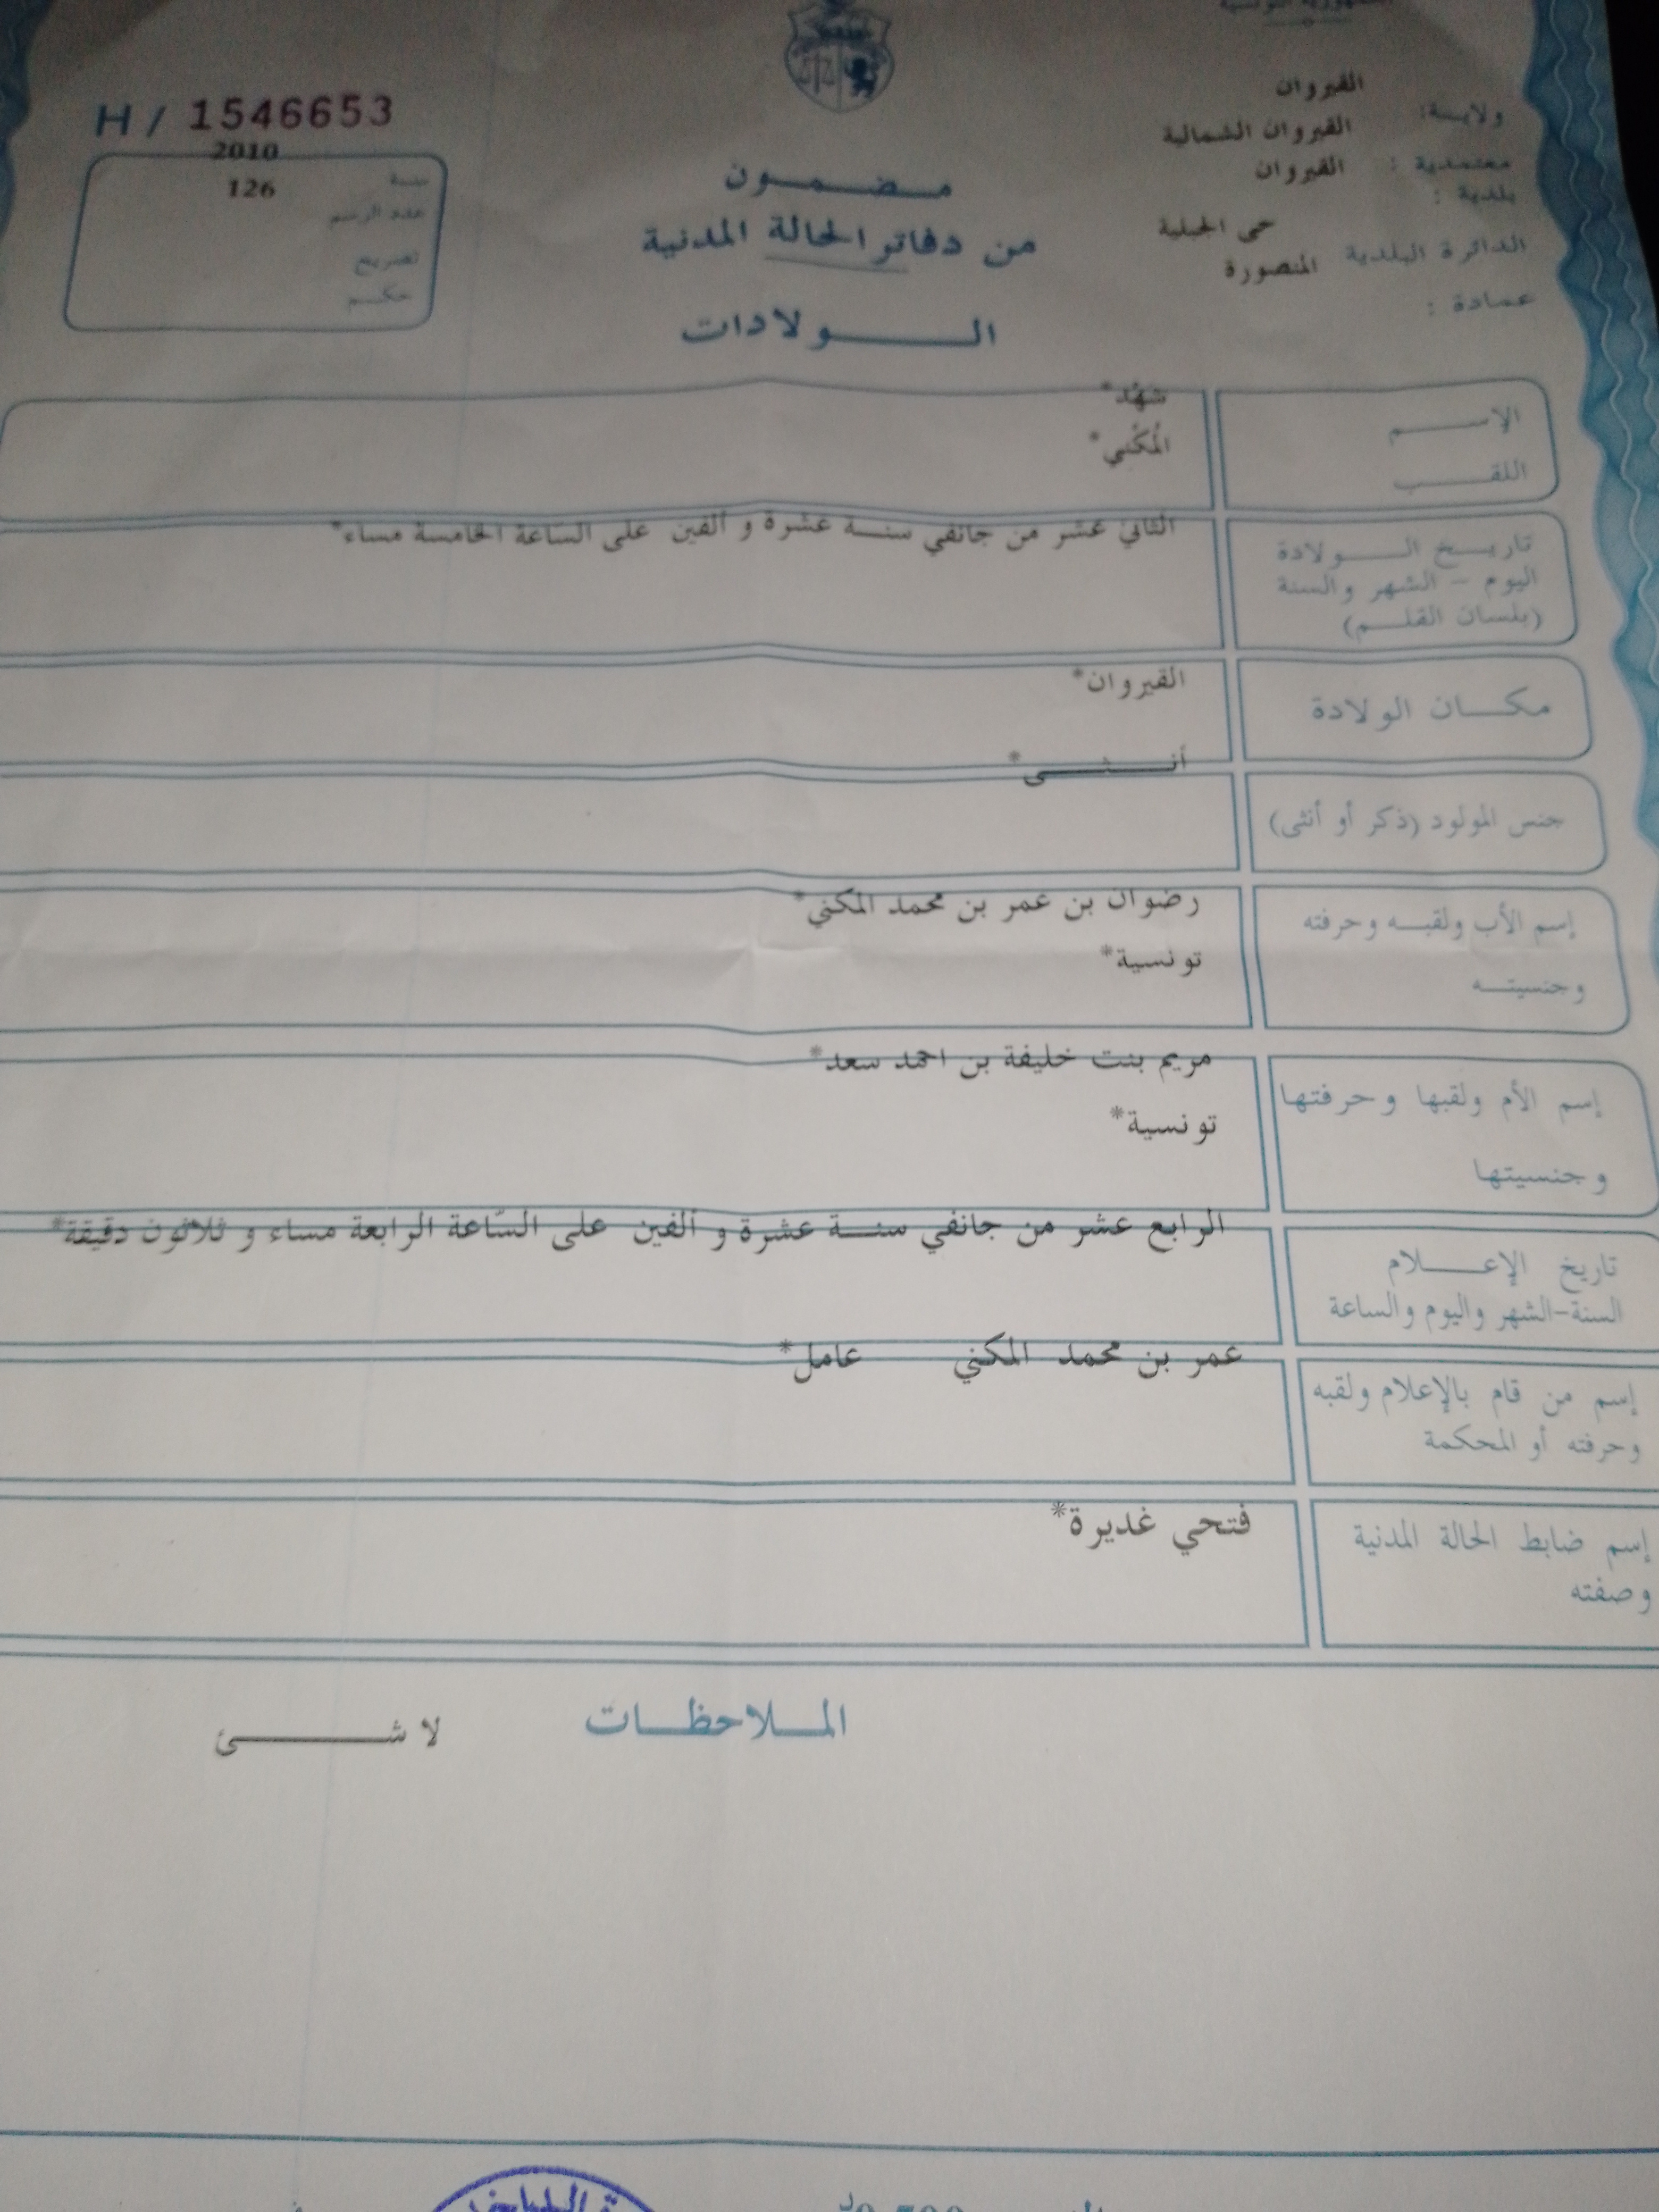 الجمهورية التونسية
H / 1546653
ولايـة: القيروان
معتمدية : القيروان الشمالية
بلدية : القيروان
الدائرة البلدية حي الجبلية
عمادة : المنصورة
سنة 2010
عدد الرسم 126
تصريح
حكم
مضمون
من دفاتر الحالة المدنية
الولادات
الإسم شهْد*
اللقب المُكْني*
تاريخ الولادة الثاني عشر من جانفي سنة عشرة و ألفين على السّاعة الخامسة مساء*
اليوم - الشهر والسنة
(بلسان القلم)
مكان الولادة القيروان*
جنس المولود (ذكر أو أنثى) أنثى*
إسم الأب ولقبه وحرفته رضوان بن عمر بن محمد المكني*
وجنسيته تونسية*
إسم الأم ولقبها وحرفتها مريم بنت خليفة بن احمد سعد*
وجنسيتها تونسية*
تاريخ الإعلام الرابع عشر من جانفي سنة عشرة و ألفين على السّاعة الرابعة مساء و ثلاثون دقيقة*
السنة-الشهر واليوم والساعة
إسم من قام بالإعلام ولقبه عمر بن محمد المكني عامل*
وحرفته أو المحكمة
إسم ضابط الحالة المدنية فتحي غديرة*
وصفته
الملاحظات لا شئ